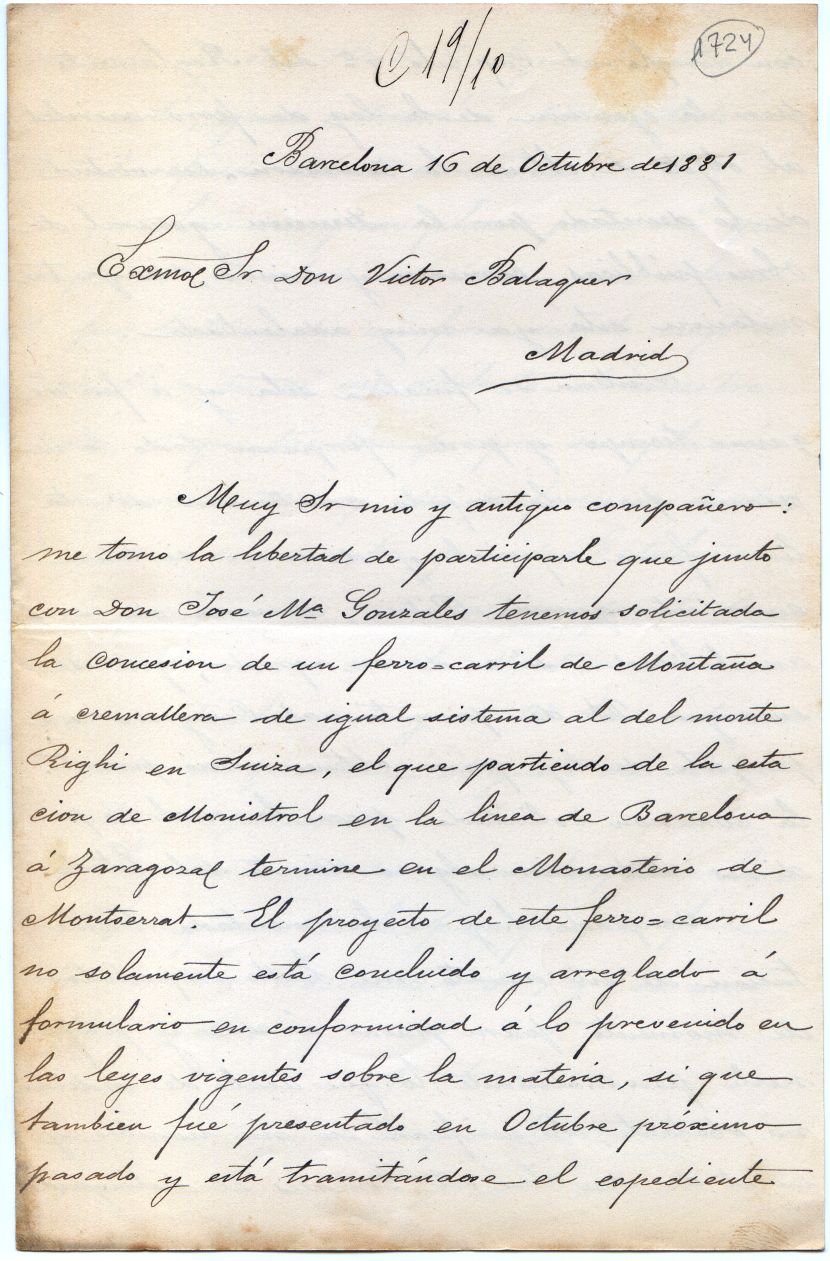 C 19/10
1724
Barcelona 16 de Octubre de 1881
Exmo Sr Don Victor Balaguer
Madrid
Muy Sr mio y antiguo compañero:
me tomo la libertad de participarle que junto
con Don José Mª Gonzales tenemos solicitada
la concesion de un ferro=carril de Montaña
á cremallera de igual sistema al del monte
Righi en Suiza, el que partiendo de la esta
cion de Monistrol en la linea de Barcelona
á Zaragoza termine en el Monasterio de
Montserrat. El proyecto de este ferro=carril
no solamente está concluido y arreglado á
formulario en conformidad á lo prevenido en
las leyes vigentes sobre la materia, si que
tambien fué presentado en Octubre próximo
pasado y está tramitándose el espediente